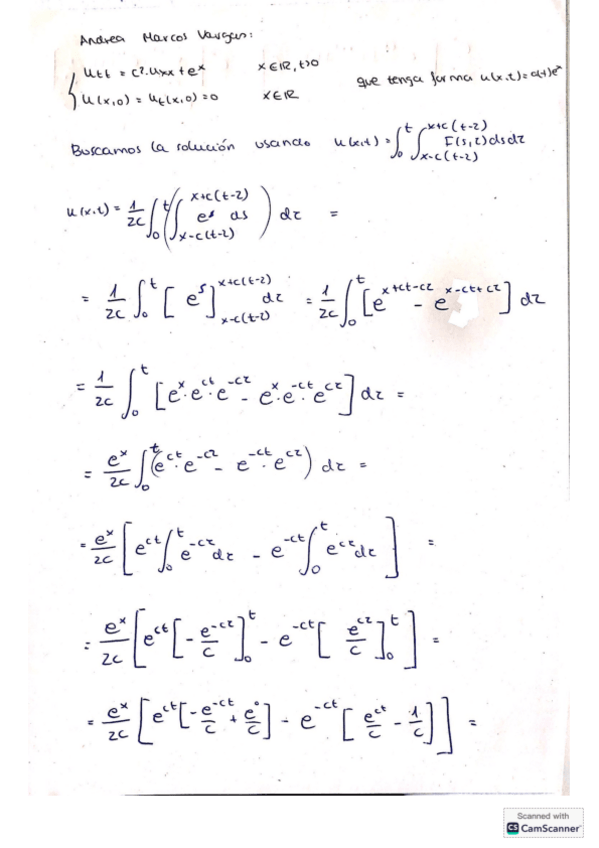 Andrea Marcos Vargas:
{ utt = c².uxx + eˣ    x ∈ ℝ, t>0
u(x,0) = ut(x,0) = 0    x ∈ ℝ
que tenga forma u(x,t) = a(t)eˣ
Buscamos la solución usando u(x,t) = ∫₀ᵗ ∫_{x-c(t-z)}^{x+c(t-z)} F(s,z) ds dz
u(x,t) = 1/2c ∫₀ᵗ ( ∫_{x-c(t-z)}^{x+c(t-z)} e^s ds ) dz =
= 1/2c ∫₀ᵗ [ e^s ]_{x-c(t-z)}^{x+c(t-z)} dz = 1/2c ∫₀ᵗ [ e^{x+ct-cz} - e^{x-ct+cz} ] dz
= 1/2c ∫₀ᵗ [ e^x · e^{ct} · e^{-cz} - e^x · e^{-ct} · e^{cz} ] dz =
= e^x/2c ∫₀ᵗ ( e^{ct} · e^{-cz} - e^{-ct} · e^{cz} ) dz =
= e^x/2c [ e^{ct} ∫₀ᵗ e^{-cz} dz - e^{-ct} ∫₀ᵗ e^{cz} dz ] =
= e^x/2c [ e^{ct} [ - e^{-cz}/c ]₀ᵗ - e^{-ct} [ e^{cz}/c ]₀ᵗ ] =
= e^x/2c [ e^{ct} [ - e^{-ct}/c + e^0/c ] - e^{-ct} [ e^{ct}/c - 1/c ] ] =
Scanned with
CS CamScanner